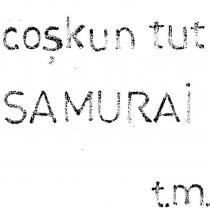 coşkun tut
SAMURAİ
t.m.